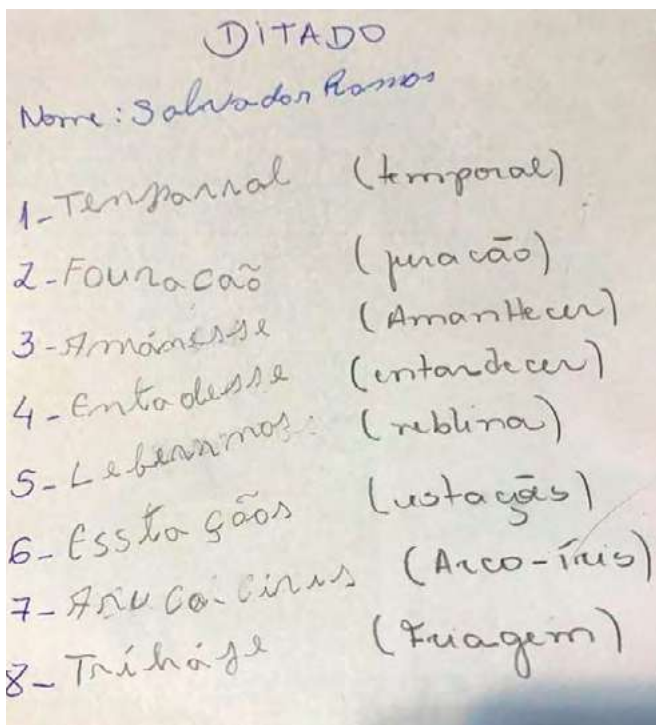 DITADO
Nome: Salvador Ramos
1-Temparral (temporal)
2-Fouracaõ (furacão)
3-Amánesse (AmanHecer)
4-Entadesse (entardecer)
5- (neblina)
6-Essta gãos (estações)
7- (Arco-íris)
8- (Friagem)